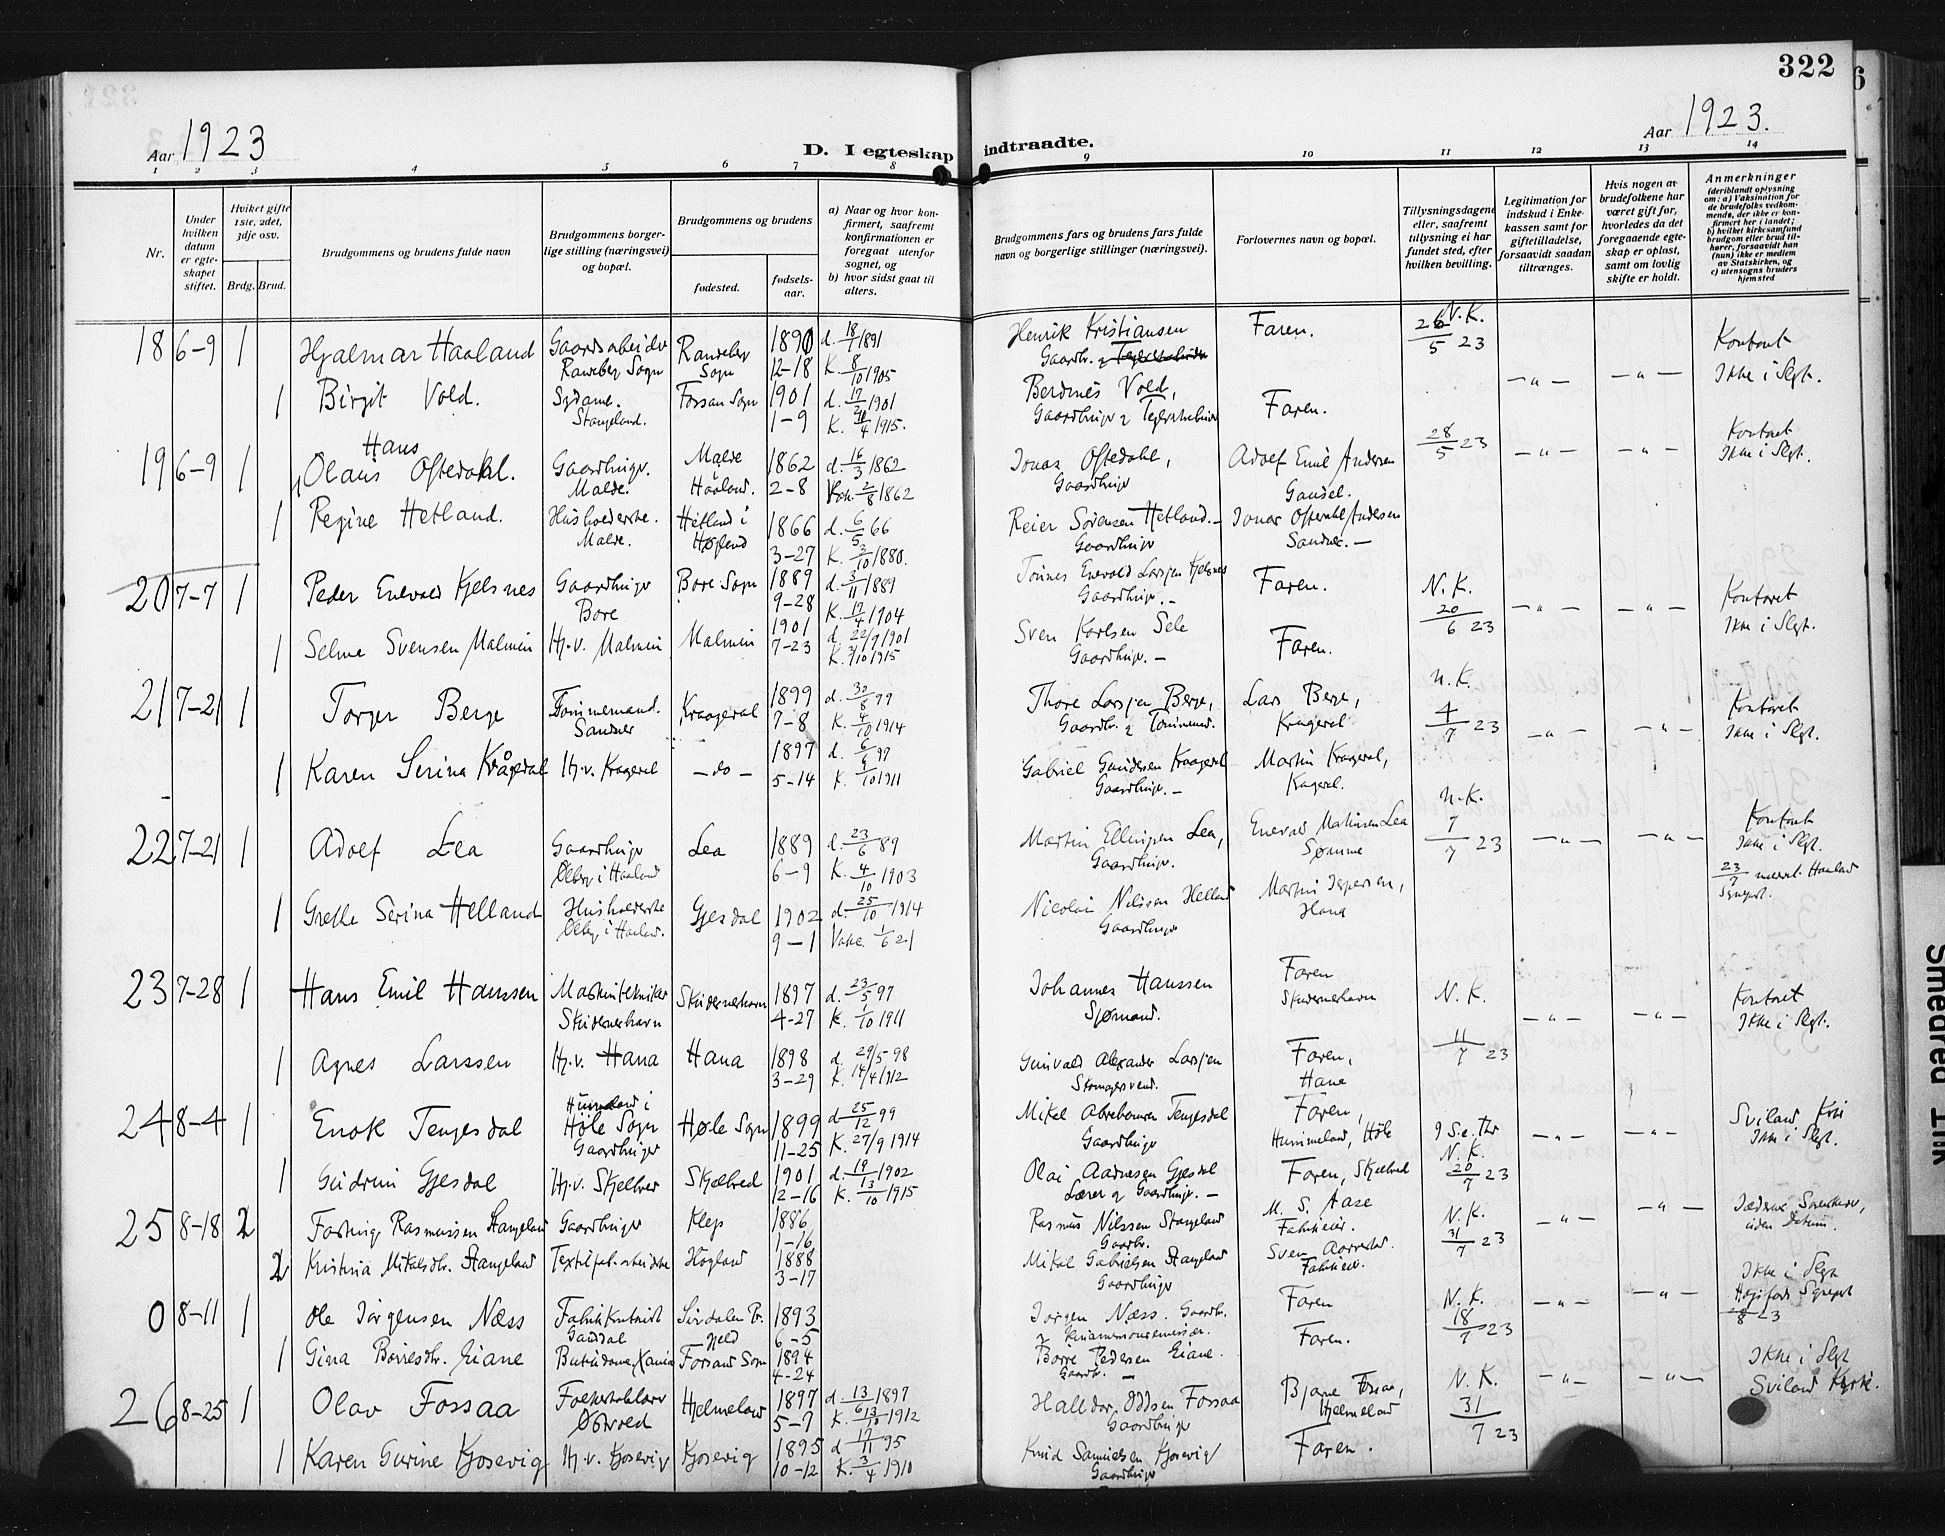 322
Aar 1923
D. I egteskap indtraadte.
Aar 1923.
1 2 3 4 5 6 7 8 9 10 11 12 13 14
Nr.
Under hvilken datum er egteskapet stiftet.
Hviket gifte 1ste, 2det, 3dje osv.
Brdg. Brud.
Brudgommens og brudens fulde navn
Brudgommens borgerlige stilling (næringsvei) og bopæl.
Brudgommens og brudens
fødested.
fødselsaar.
a) Naar og hvor konfirmert, saafremt konfirmationen er foregaat utenfor sognet, og
b) hvor sidst gaat til alters.
Brudgommens fars og brudens fars fulde navn og borgerlige stillinger (næringsvei).
Forlovernes navn og bopæl.
Tillysningsdagene eller, saafremt tillysning ei har fundet sted, efter hvilken bevilling.
Legitimation for indskud i Enkekassen samt for giftetilladelse, forsaavidt saadan tiltrænges.
Hvis nogen av brudefolkene har været gift før, hvorledes da det foregaaende egteskap er opløst, samt om lovlig skifte er holdt.
Anmerkninger
(deriblandt oplysning om: a) Vaksination for de brudefolks vedkommende, der ikke er konfirmert her i landet; b) hvilket kirkesamfund brudgom eller brud tilhører, forsaavidt han (hun) ikke er medlem av Statskirken, og c) utensogns bruders hjemsted
18 6-9 1 Hjalmar Haaland Gaardsarbeider Randeberg Sogn Randeberg Sogn 1890 12-18 d. 18/1 1891 K. 8/10 1905 Henrik Kristiansen Gaardbr. Faren. N.K. 26/5 23 -"- -"- Kontoret Ikke i Slgt.
1 Birgit Vold. Sydame. Stangeland. Forsan Sogn 1901 1-9 d. 17/ 1901 K. /4 1915. Berdines Vold, Gaardbruger & Faren.
19 6-9 1 Hans Olaus Oftedahl. Gaardbruger. Malde. Malde i Haaland. 1862 2-8 d. 16/3 1862 Vak. 2/8 1862 Jonas Oftedahl, Gaardbruger Adolf Emil Andersen Gausel. 28/5 23 -"- -"- Kontoret Ikke i Slgt.
1 Regine Hetland. Husholderske. Malde. Hetland i Høgland 1866 3-27 d. 6/5 66 K. 3/10 1880. Reier Sørensen Hetland. - Gaardbruger Jonas Oftedahl Andersen Sandnes. -
20 7-7 1 Peder Enevald Kjelsnes Gaardbruger Bore Bore Sogn 1889 9-28 d. 3/11 1889 K. 17/4 1904 Tønnes Enevald Larsen Kjelsnes Gaardbruger. - Faren. N.K. 20/6 23 -"- -"- Kontoret Ikke i Slgt.
1 Selma Svensen Malmein Hj.v. Malmein Malmein 1901 7-23 d. 22/9 1901 K. 3/10 1915 Sven Karlsen Sele Gaardbruger. - Faren.
21 7-21 1 Torger Berge Tømmermand. Sandnes Kraagedal 1899 7-8 d. 30/8 99 K. 4/10 1914 Thore Larsen Berge, Gaardbr. & Tømmermd. Lars Berge, Kragedal N.K. 4/7 23 -"- -"- Kontoret Ikke i Slgt.
1 Karen Serina Krågedal Hj.v. Kragedal - do - 1897 5-14 d. 6/6 97 K. 1/10 1911 Gabriel Gundersen Kraagedal Gaardbruger. - Martin Kragedal, Kragedal.
22 7-21 1 Adolf Lea Gaardbruger Ølberg i Haaland Lea 1889 6-9 d. 23/6 89 K. 4/10 1903 Martin Ellingsen Lea, Gaardbruger. Enevald Martinsen Lea Sømme N.K. 7/7 23 -"- -"- Kontoret Ikke i Slgt. 23/7 Haaland Sognepst.
1 Grethe Serina Helland Husholderske Ølberg i Haaland. Gjesdal 1902 9-1 d. 25/10 1914 Vakc. 1/6 21 Nicolai Nilssen Helland Gaardbruger Martin Jespersen, Hana
23 7-28 1 Hans Emil Hanssen Maskintekniker Skudesneshavn Skudesneshavn 1897 4-27 d. 23/5 97 K. 1/10 1911 Johannes Hanssen Sjømand. Faren Skudesneshavn N.K. 11/7 23 -"- -"- Kontoret Ikke i Slgt.
1 Agnes Larssen Hj.v. Hana Hana 1898 3-29 d. 29/5-98 K. 14/4 1912 Gunvald Alexander Larsen Faren, Hana
24 8-4 1 Enok Tengesdal Hummeland i Høle Sogn Gaardbruger Høle Sogn 1899 11-25 d 25/12 99 K. 27/9 1914 Mikal Abrahamsen Tengesdal Gaardbruger Faren, Hummeland, Høle 9 S.e. Tr. N.K. 20/7 23 -"- -"- Sviland Ikke i Slgt.
1 Gudrun Gjesdal Hj.v. Skjelbred Skjælbred 1901 12-16 d. 19/1 1902 K. 13/10 1915 Olai Aadnesen Gjesdal Lærer og Gaardbruger. - Faren, Skjelbred
25 8-18 2 Rasmussen Stangeland Gaardbruger Klep 1886 1-16 Rasmus Nilssen Stangeland Gaardbr. M. S. Aase Fabrikeier. N.K. 31/7 23 -"- -"- uden Datum.
2 Kristina Mikalsdtr. Stangeland Textilfab.-arbeiderske Høgland 1888 3-17 Mikal Gabrielsen Stangeland Gaardbruger Sven Fabrikeier.
0 8-11 1 Ole Jørgensen Næss Fabrikarbeider Sirdalen Pr. gjeld 1893 6-5 Jørgen Næss. Gaardbr. & Kinamissionsemissær. Faren N.K. 18/7 23 -"- -"- Ikke i Slgt. Høifjords Sognepst /8 23
1 Gina Børresdtr. Eiane Butikdame, Forsand Sogn 1894 4-24 Børre Pedersen Eiane. Gaardbr. - Faren.
26 8-25 1 Olav Fossaa Hjelmeland 1897 5-9 d. 13/6 1897 K. 13/10 1912 Halldor Oddsen Fossaa Gaardbruger Bjarne Fossaa, Hjelmeland N.K. 31/7 23 -"- -"- Ikke i Slgt Sviland Kirke.
1 Karen Gurine Kjosevig Hj.v. Kjosevig Kjosevig 1895 10-12 d 17/11 95 K. 3/4 1910 Knud Samuelsen Kjosevig Gaardbruger Faren.
Smedred Trk